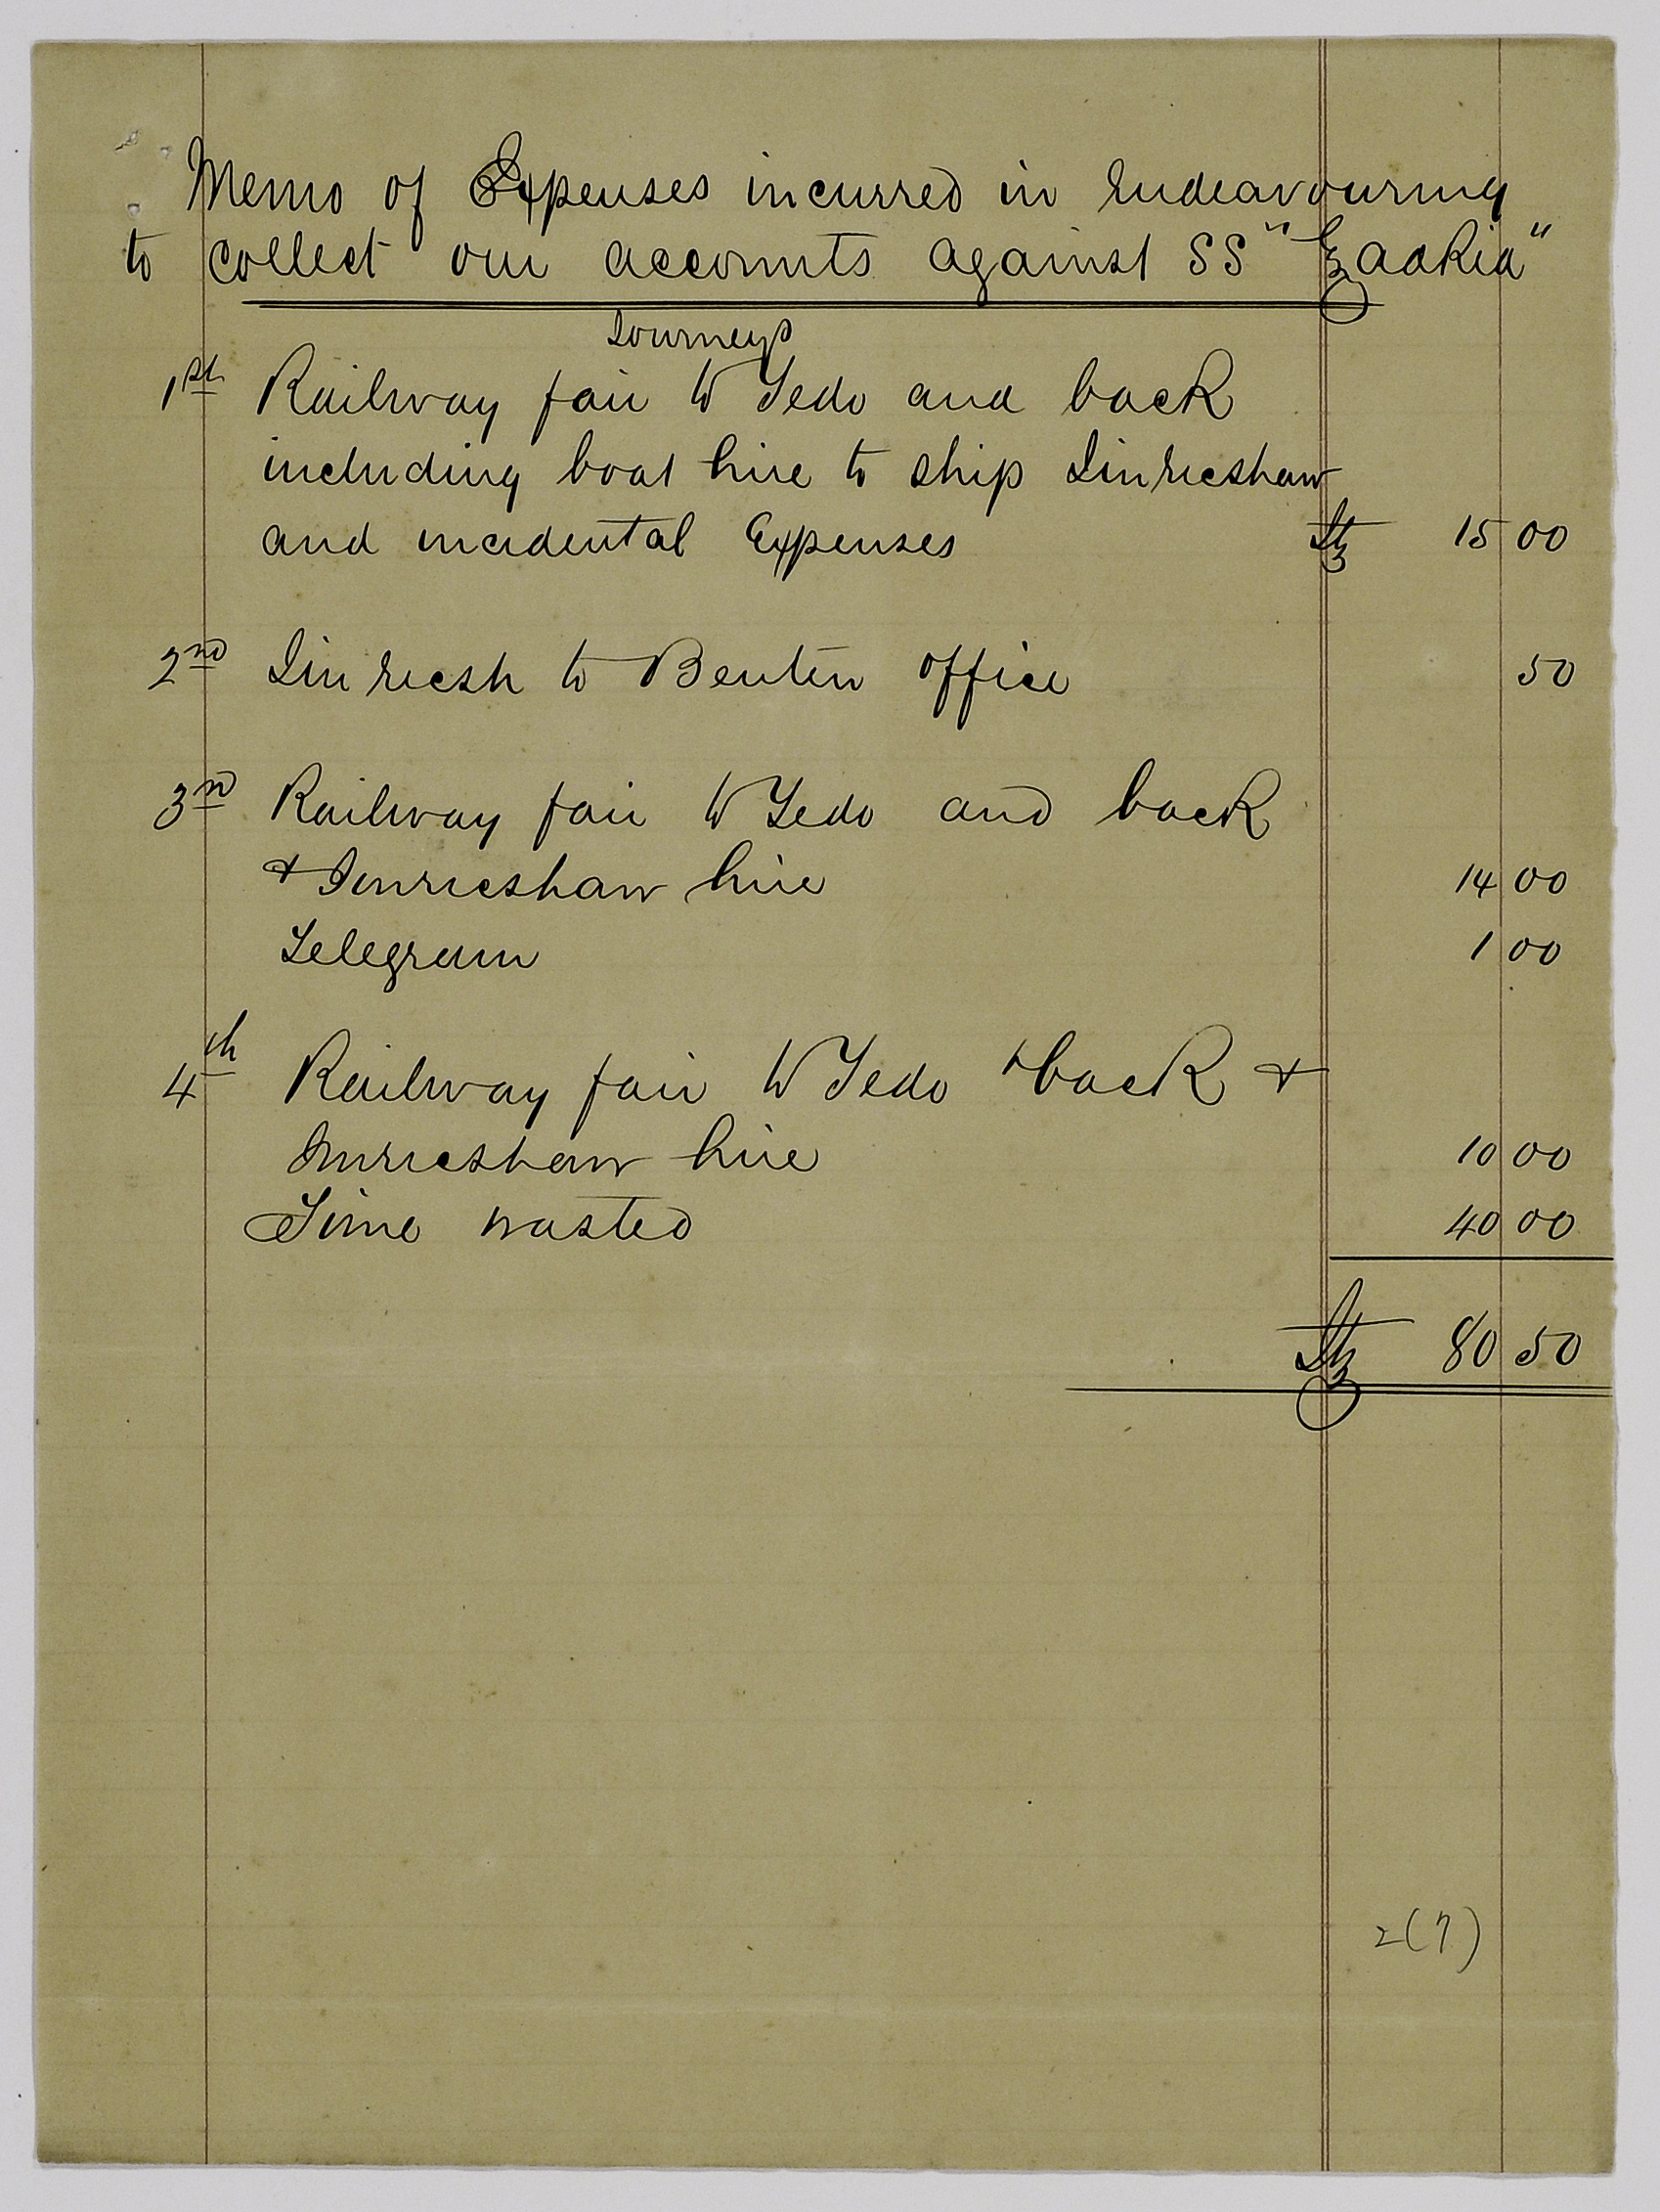 Memo of Expenses incurred in endeavouring
to collect our accounts against SS "Zadkia"
Journeys
1st Railway fair to Yedo and back
including boat hire to ship Jinricshaw
and incidental Expenses 15 00
2nd Jinricsh to Benten office 50
3rd Railway fair to Yedo and back
+ Jinricshaw hire 14 00
Telegram 1 00
4th Railway fair to Yedo + back +
Jinricshaw hire 10 00
Time wasted 40 00
80 50
2(7)